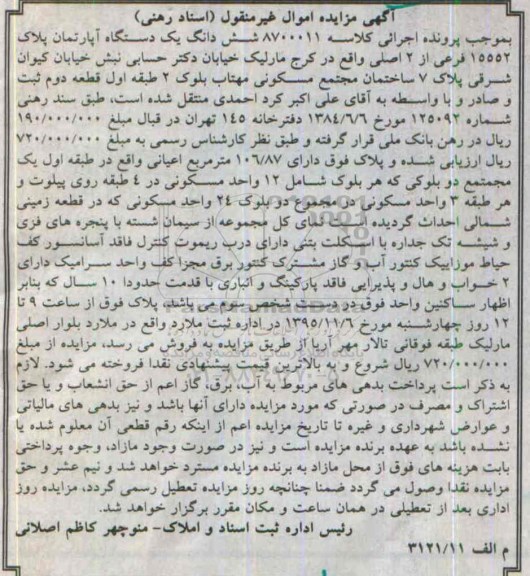 آگهی مزایده اموال غیرمنقول (اسناد رهنی)
بموجب پرونده اجرائی کلاسه ۸۷۰۰۰۱۱ شش دانگ یک دستگاه آپارتمان پلاک
۱۵۵۵۲ فرعی از ۲ اصلی واقع در کرج مارلیک خیابان دکتر حسابی نبش خیابان کیوان
شرقی پلاک ۷ ساختمان مجتمع مسکونی مهتاب بلوک ۲ طبقه اول قطعه دوم ثبت
و صادر و با واسطه به آقای علی اکبر کرد احمدی منتقل شده است، طبق سند رهنی
شماره ۱۲۵۰۹۲ مورخ ۱۳۸٤/٦/٦ دفترخانه ۱٤۵ تهران در قبال مبلغ ۱۹۰/۰۰۰/۰۰۰
ریال در رهن بانک ملی قرار گرفته و طبق نظر کارشناس رسمی به مبلغ ۷۲۰/۰۰۰/۰۰۰
ریال ارزیابی شده و پلاک فوق دارای ۱۰٦/۸۷ مترمربع اعیانی واقع در طبقه اول یک
مجمتمع دو بلوکی که هر بلوک شامل ۱۲ واحد مسکونی در ٤ طبقه روی پیلوت و
هر طبقه ۳ واحد مسکونی و در مجموع دو بلوک ۲٤ واحد مسکونی که در قطعه زمینی
شمالی احداث گردیده است نمای کل مجموعه از سیمان شسته با پنجره های فزی
و شیشه تک جداره با اسکلت بتنی دارای درب ریموت کنترل فاقد آسانسور کف
حیاط موزاییک کنتور آب و گاز مشترک کنتور برق مجزا کف واحد سرامیک دارای
۲ خواب و هال و پذیرایی فاقد پارکینگ و انباری با قدمت حدودا ۱۰ سال که بنابر
اظهار ساکنین واحد فوق در دست شخص سوم می باشد، پلاک فوق از ساعت ۹ تا
۱۲ روز چهارشنبه مورخ ۱۳۹۵/۱۱/٦ در اداره ثبت ملارد واقع در ملارد بلوار اصلی
مارلیک طبقه فوقانی تالار مهر آریا از طریق مزایده به فروش می رسد، مزایده از مبلغ
۷۲۰/۰۰۰/۰۰۰ ریال شروع و به بالاترین قیمت پیشنهادی نقدا فروخته می شود. لازم
به ذکر است پرداخت بدهی های مربوط به آب، برق، گاز اعم از حق انشعاب و یا حق
اشتراک و مصرف در صورتی که مورد مزایده دارای آنها باشد و نیز بدهی های مالیاتی
و عوارض شهرداری و غیره تا تاریخ مزایده اعم از اینکه رقم قطعی آن معلوم شده یا
نشده باشد به عهده برنده مزایده است و نیز در صورت وجود مازاد، وجوه پرداختی
بابت هزینه های فوق از محل مازاد به برنده مزایده مسترد خواهد شد و نیم عشر و حق
مزایده نقدا وصول می گردد ضمنا چنانچه روز مزایده تعطیل رسمی گردد، مزایده روز
اداری بعد از تعطیلی در همان ساعت و مکان مقرر برگزار خواهد شد.
رئیس اداره ثبت اسناد و املاک- منوچهر کاظم اصلانی
م الف ۳۱۲۱/۱۱